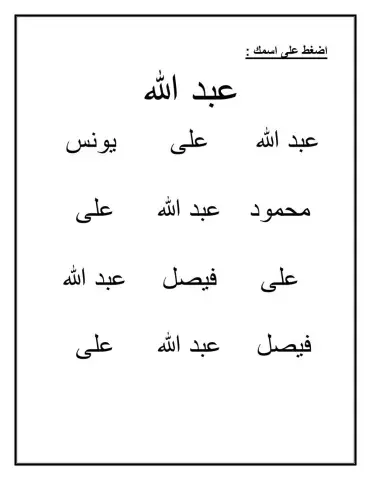 اضغط على اسمك :
عبد الله
عبد الله على يونس
محمود عبد الله على
على فيصل عبد الله
فيصل عبد الله على